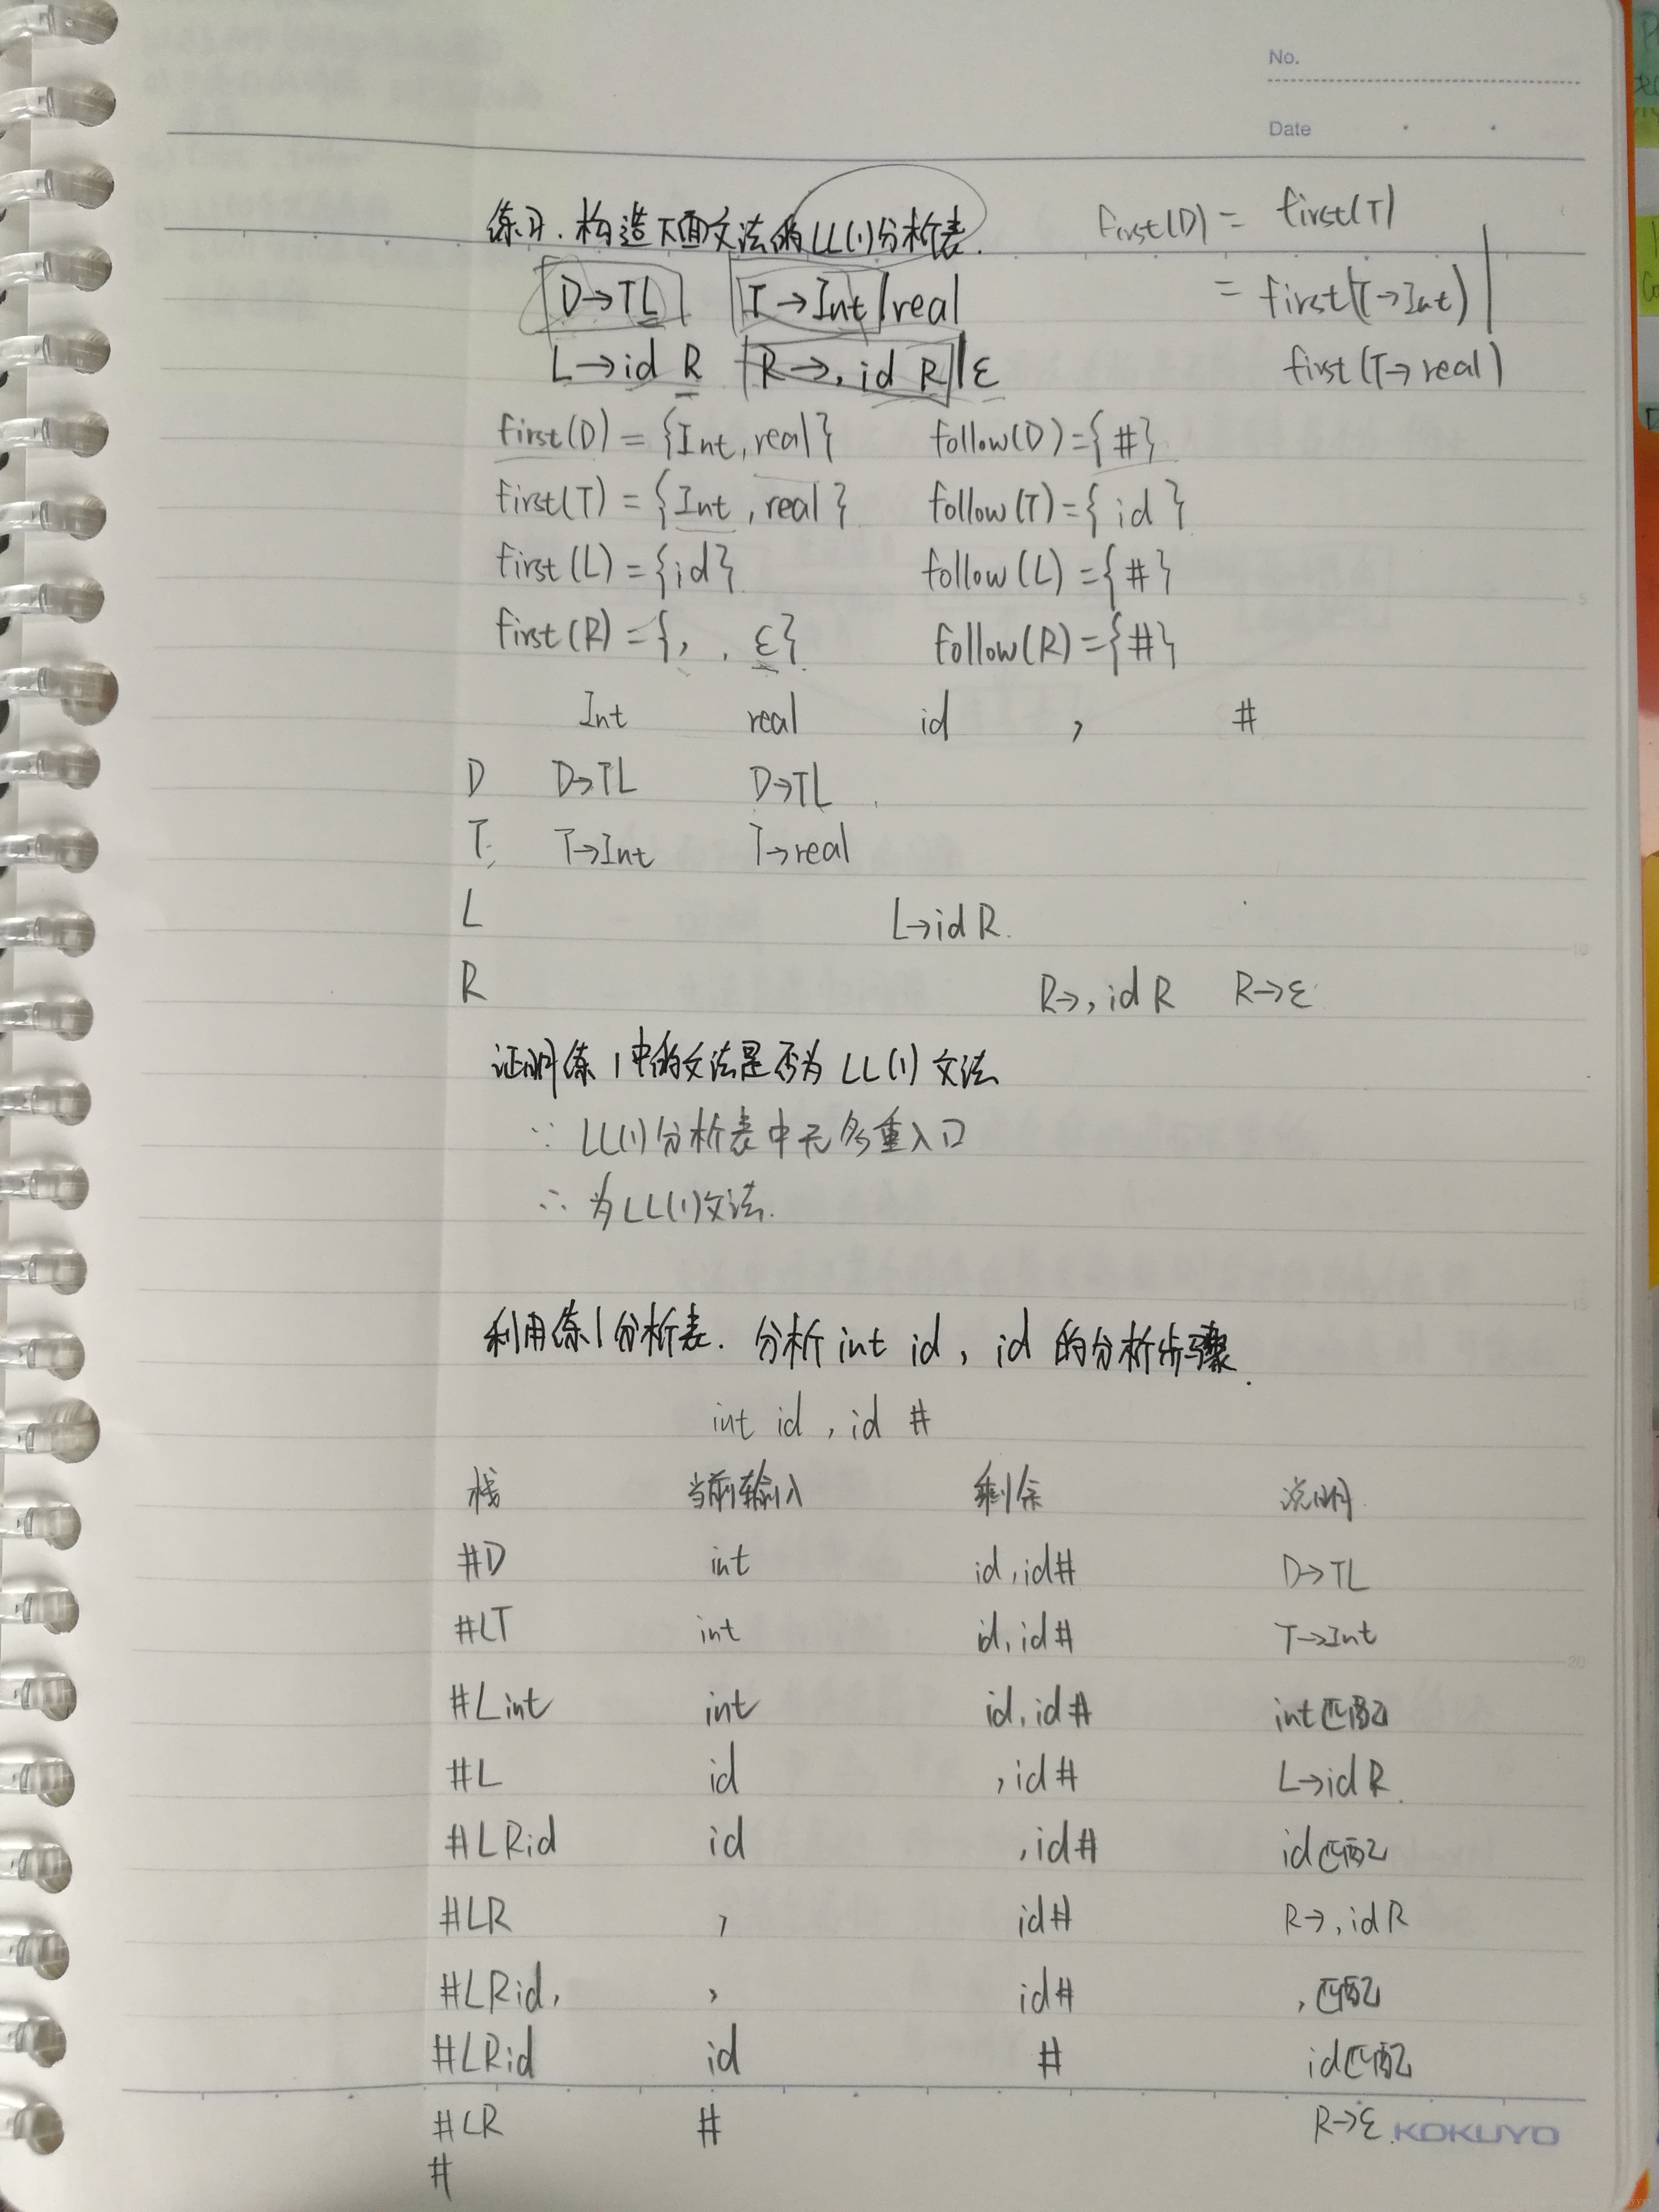 No.
Date
练习.构造下面文法的LL(1)分析表. first(D) = first(T)
D→TL T→Int|real = first(T→Int)|
L→id R R→,id R|ε first(T→real)
first(D)={Int,real} follow(D)={#}
first(T)={Int,real} follow(T)={id}
first(L)={id} follow(L)={#}
first(R)={, , ε} follow(R)={#}
Int real id , #
D D→TL D→TL
T T→Int T→real
L L→id R
R R→,id R R→ε
证明练1中的文法是否为LL(1)文法
∵ LL(1)分析表中无多重入口
∴ 为LL(1)文法.
利用练1分析表.分析int id, id 的分析步骤.
int id , id #
栈 当前输入 剩余 说明
#D int id,id# D→TL
#LT int id,id# T→Int
#Lint int id,id# int匹配
#L id ,id# L→id R
#LRid id ,id# id匹配
#LR , id# R→,idR
#LRid, , id# ,匹配
#LRid id # id匹配
#LR # R→ε
KOKUYO
#
5
10
15
20